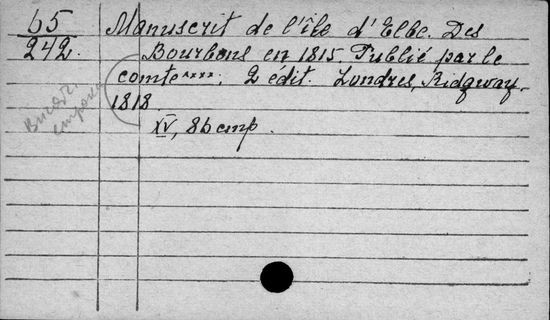 65
242.
Manuscrit de l'île d'Elbe. Des
Bourbons en 1815. Publié par le
comte ****. 2 édit. Londres, Ridgway.
1818.
XV, 86 стр.